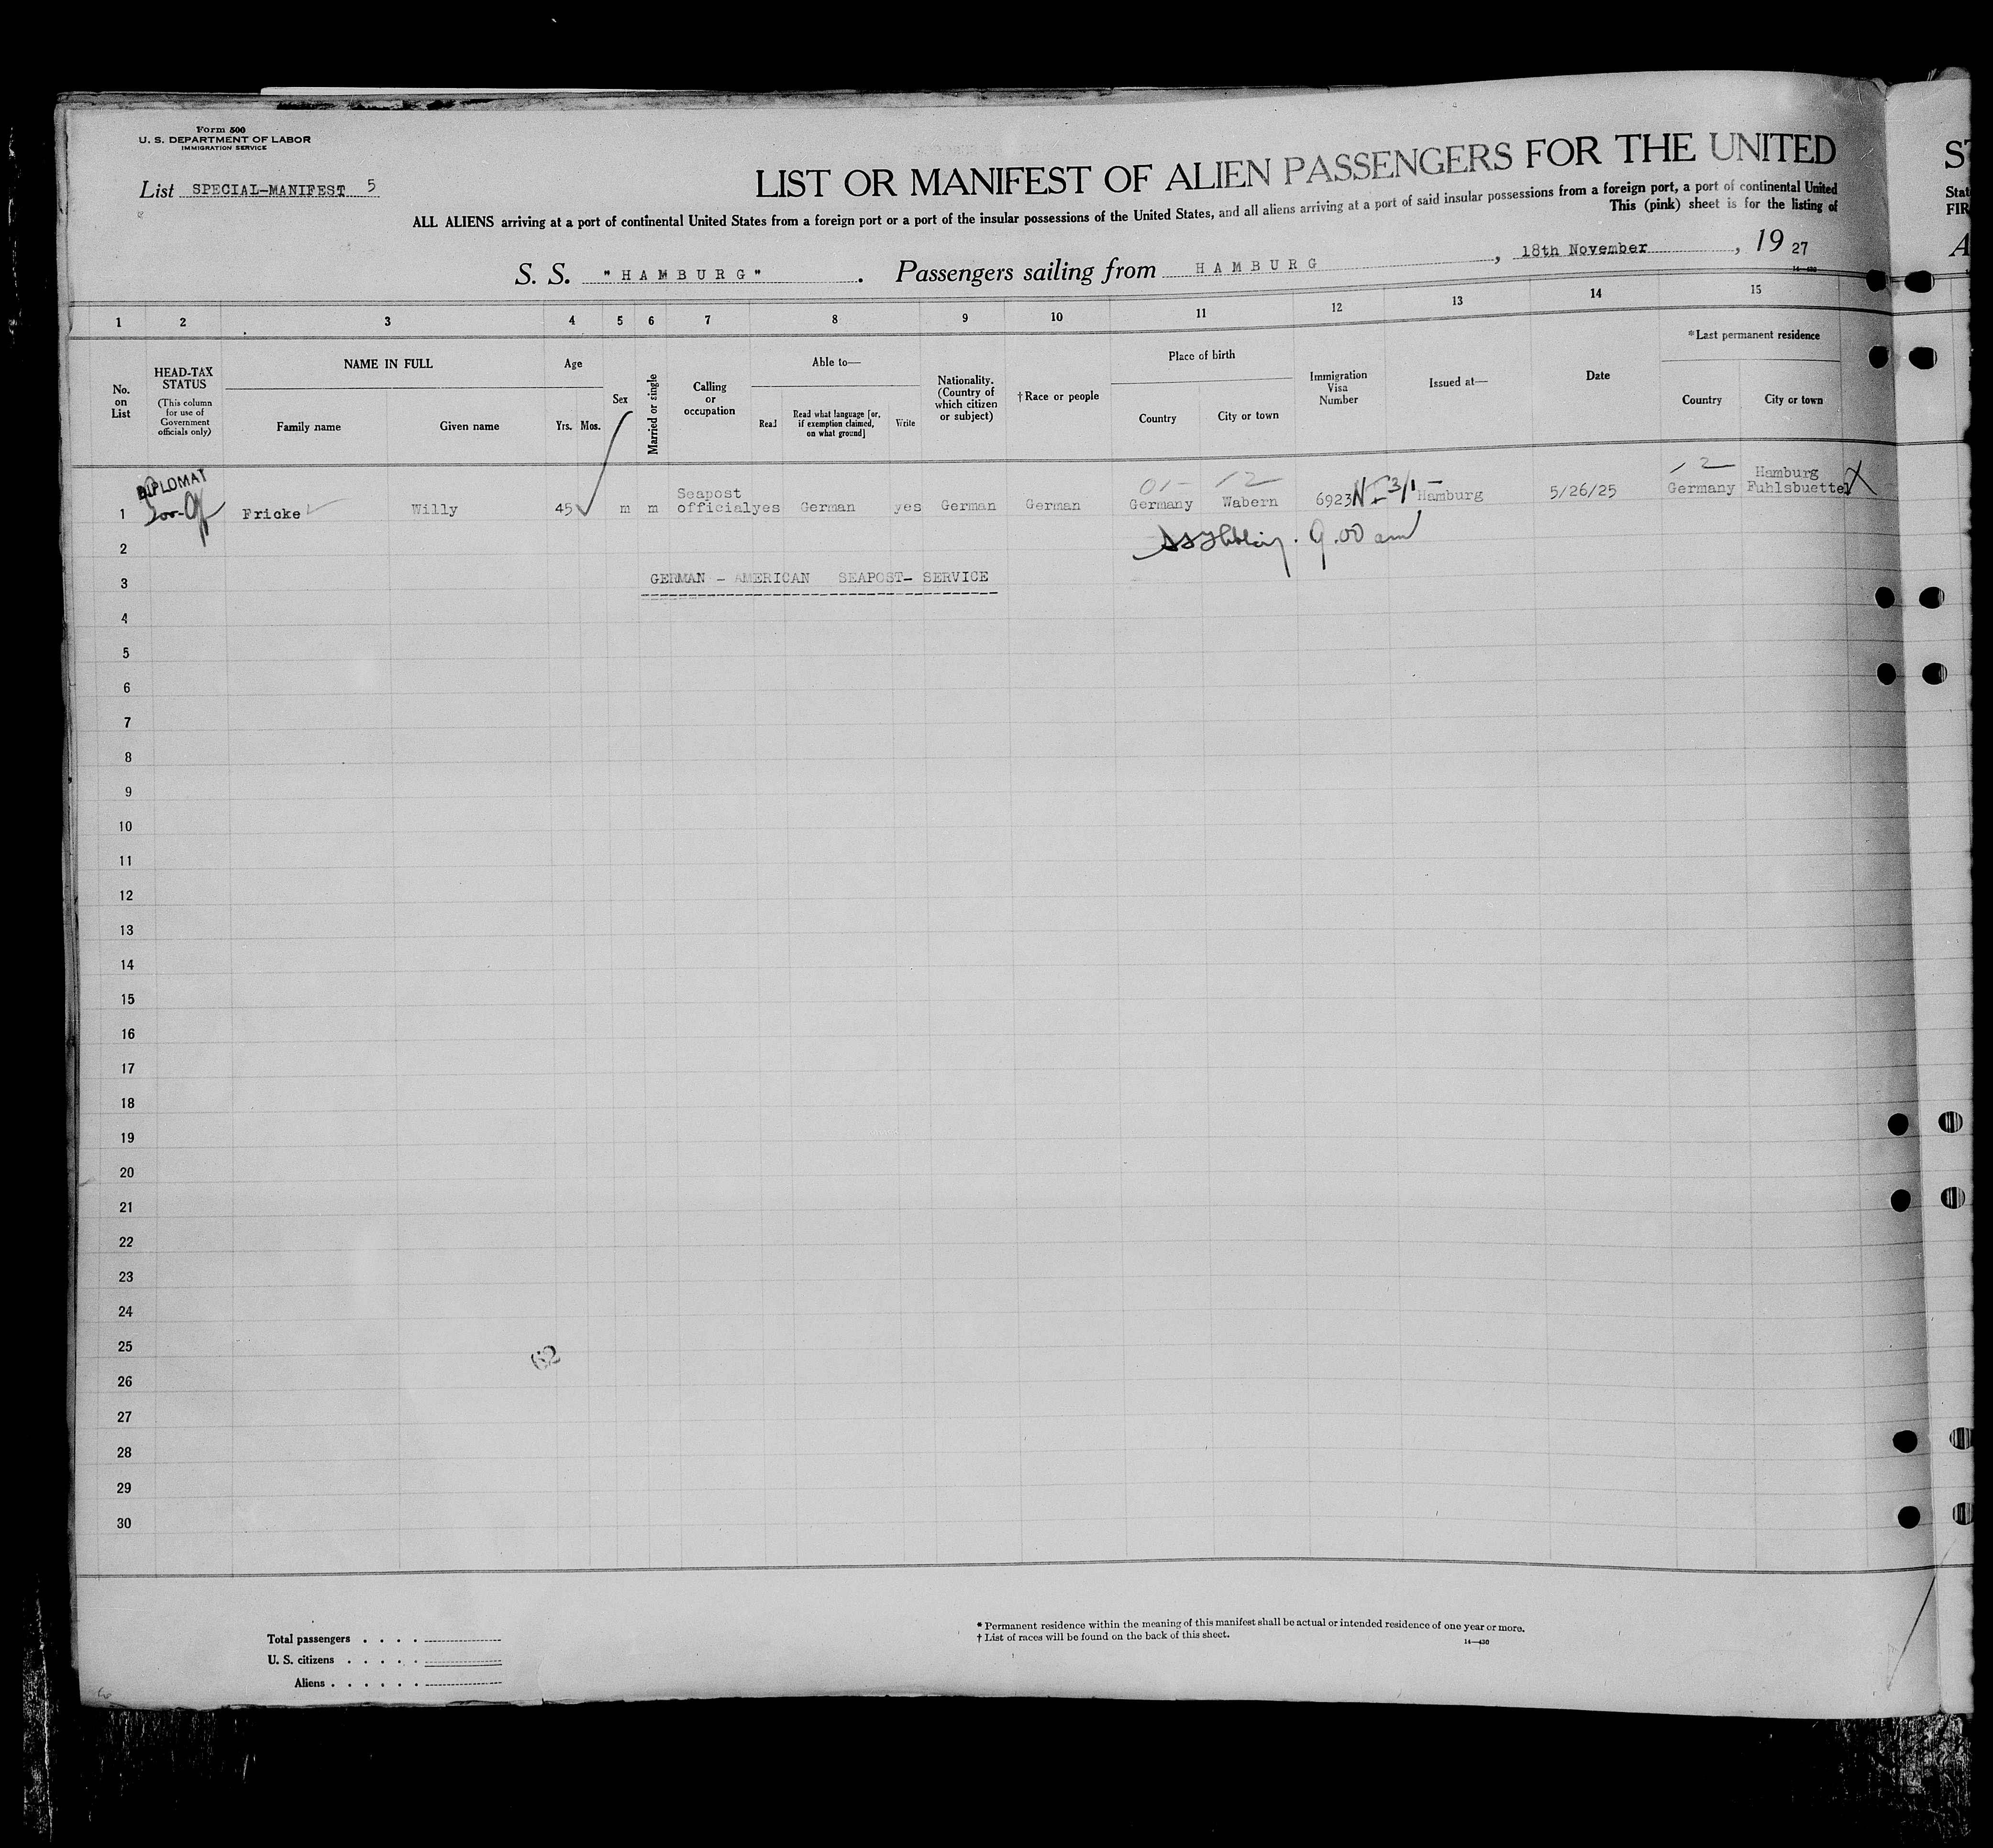 Form 500
U. S. DEPARTMENT OF LABOR
IMMIGRATION SERVICE
List SPECIAL-MANIFEST 5
LIST OR MANIFEST OF ALIEN PASSENGERS FOR THE UNITED
ALL ALIENS arriving at a port of continental United States from a foreign port or a port of the insular possessions of the United States, and all aliens arriving at a port of said insular possessions from a foreign port, a port of continental United
This (pink) sheet is for the listing of
S. S. "HAMBURG". Passengers sailing from HAMBURG, 18th November, 19 27
14—430
1 2 3 4 5 6 7 8 9 10 11 12 13 14 15
No. on List
HEAD-TAX STATUS
(This column for use of Government officials only)
NAME IN FULL
Family name Given name
Age
Yrs. Mos.
Sex
Married or single
Calling or occupation
Able to—
Read
Read what language [or, if exemption claimed, on what ground]
Write
Nationality. (Country of which citizen or subject)
† Race or people
Place of birth
Country City or town
Immigration Visa Number
Issued at—
Date
* Last permanent residence
Country City or town
DIPLOMAT
1 Fricke Willy 45 m m Seapost official yes German yes German German Germany Wabern 6923 Hamburg 5/26/25 Germany Hamburg Fuhlsbuettel
01- -2 3/1 - -2 X
2
9.00 am
3 GERMAN - AMERICAN SEAPOST- SERVICE
4
5
6
7
8
9
10
11
12
13
14
15
16
17
18
19
20
21
22
23
24
25
62
26
27
28
29
30
Total passengers . . . .
U. S. citizens . . . . .
Aliens . . . . . .
* Permanent residence within the meaning of this manifest shall be actual or intended residence of one year or more.
† List of races will be found on the back of this sheet.
14—430